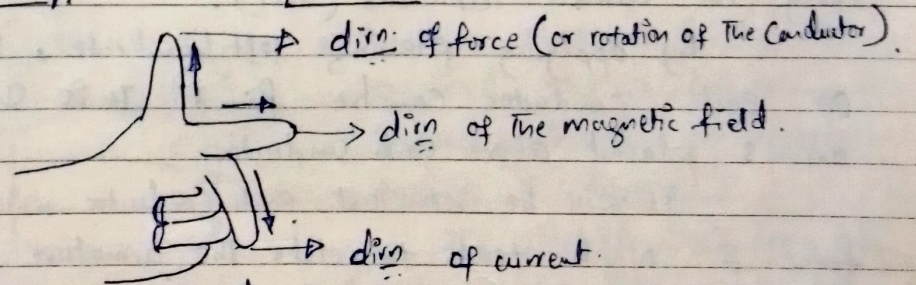 dirn. of force (or rotation of The Conductor).
dirn of The magnetic field.
dirn of current.